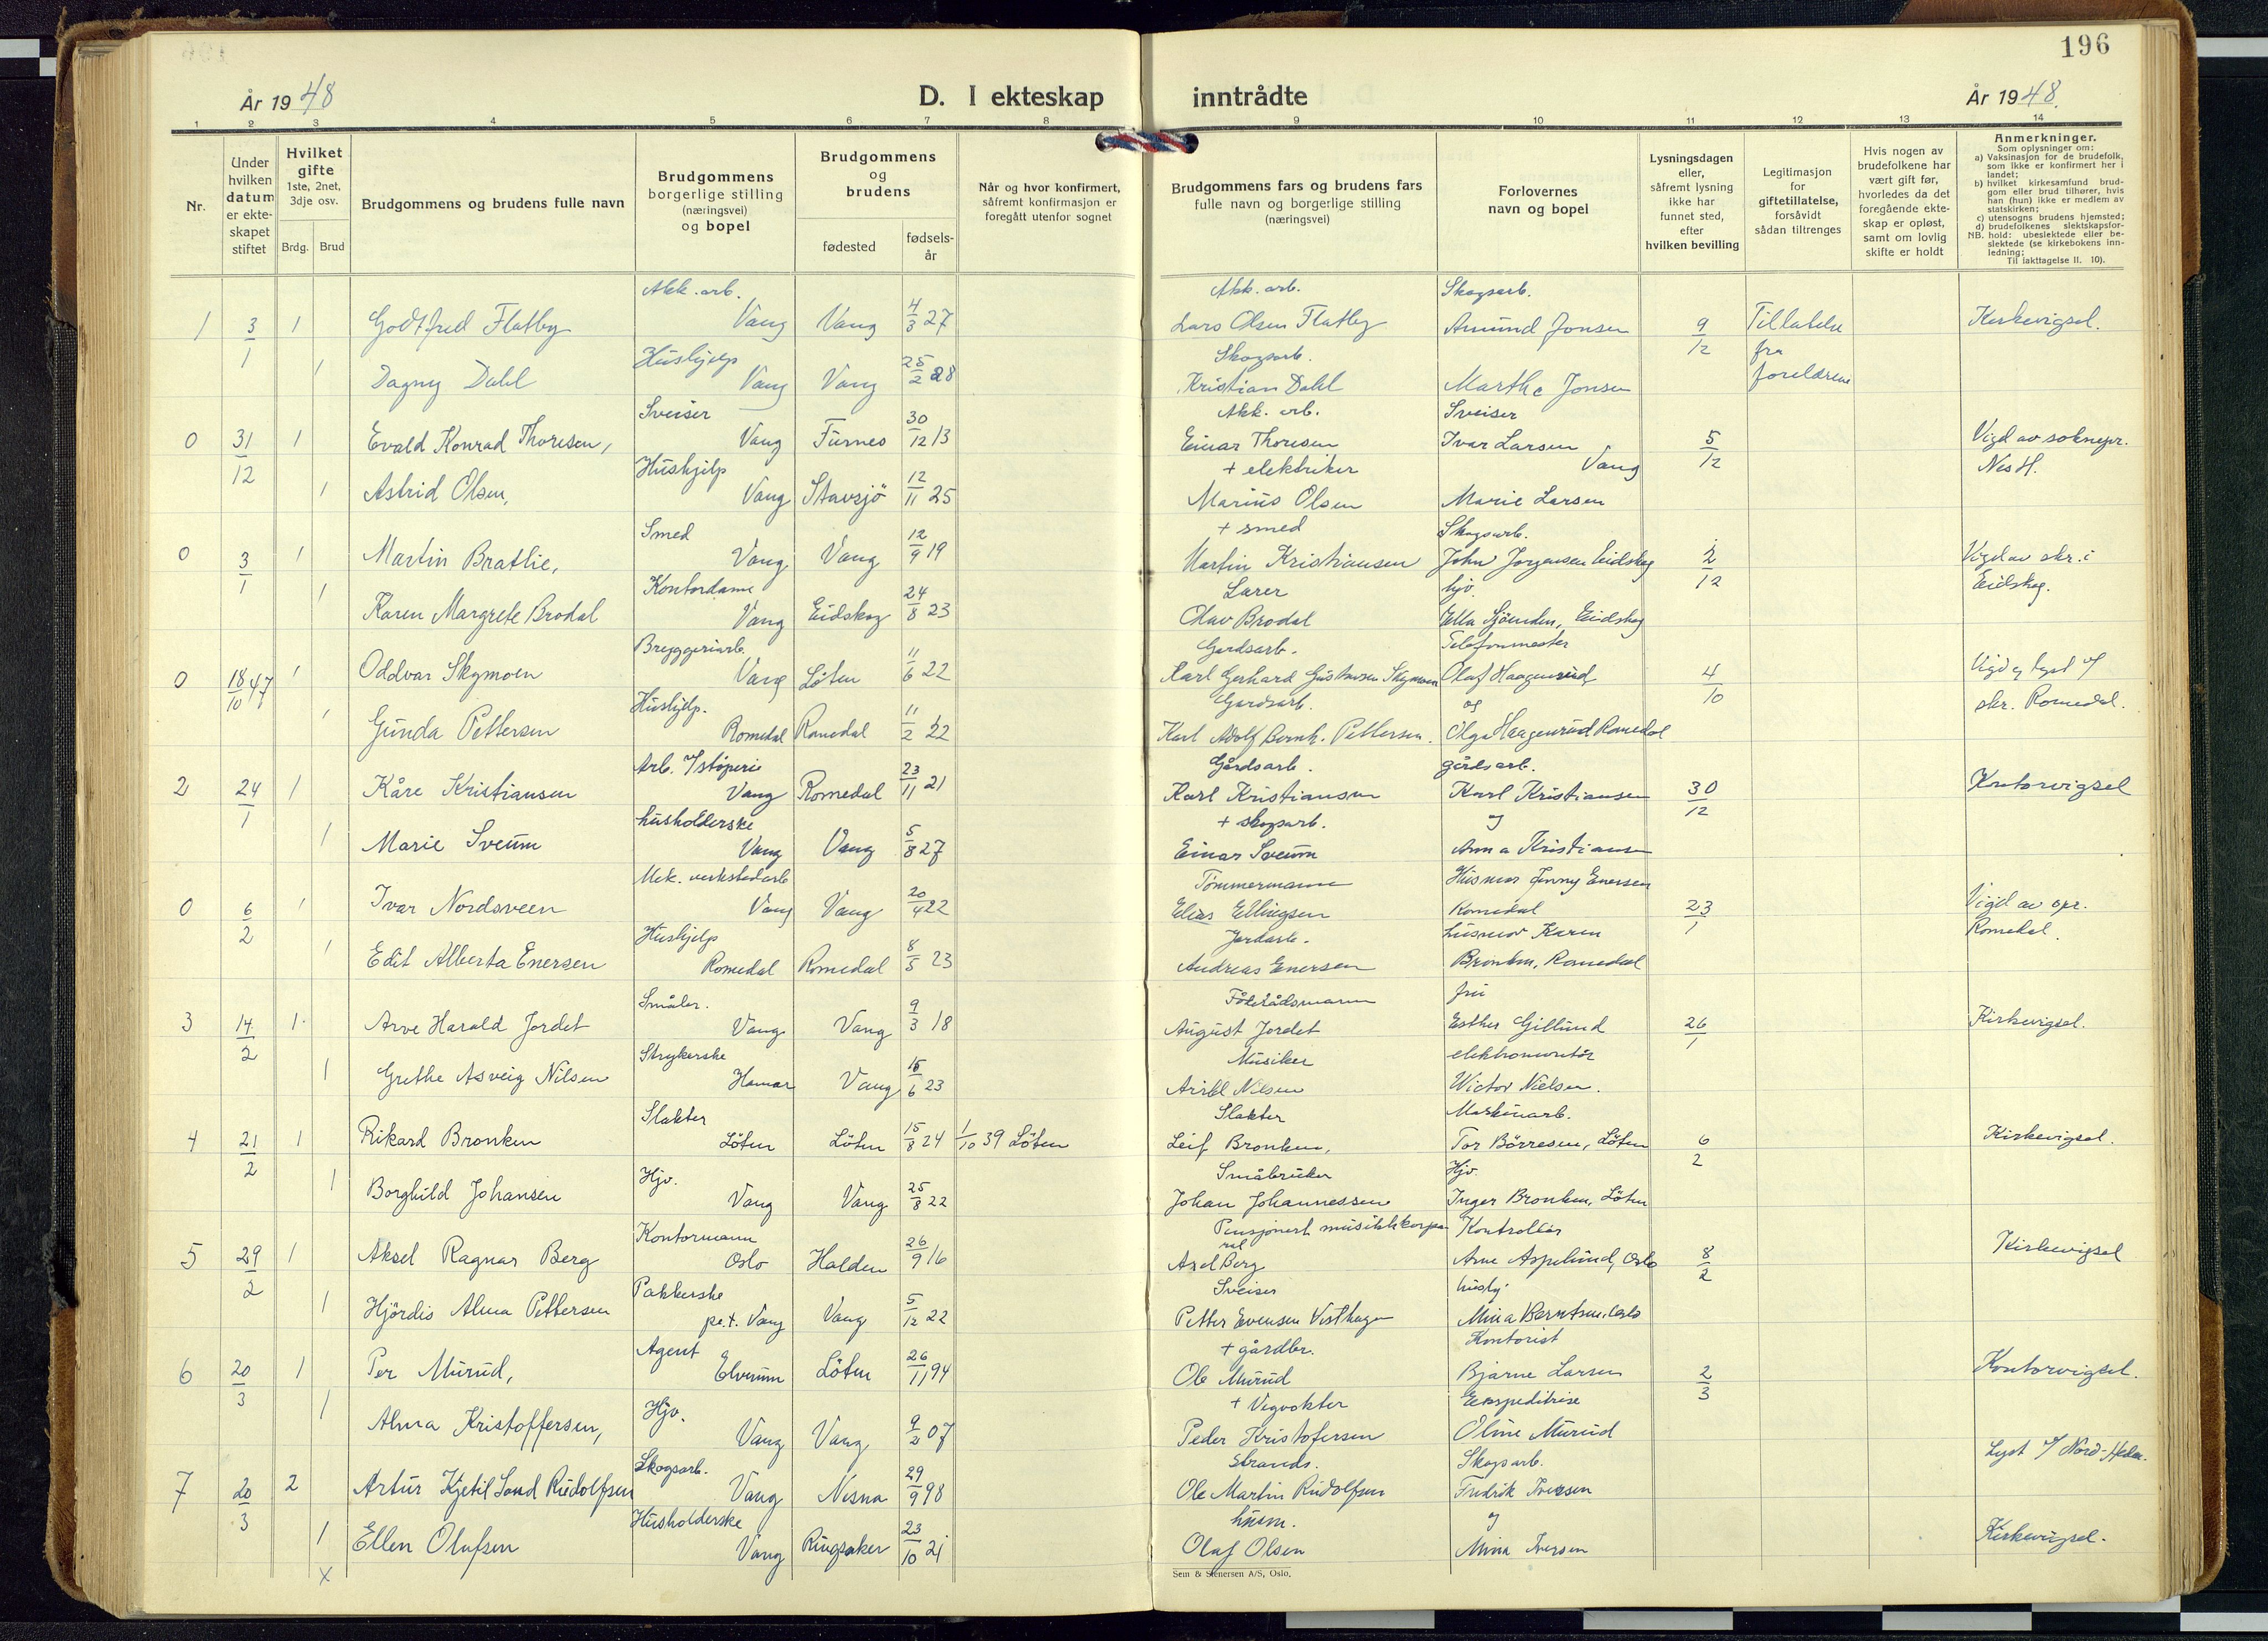 196
År 1948
D. I ekteskap
inntrådte
År 1948.
1 2 3 4 5 6 7 8 9 10 11 12 13 14
Nr.
Under hvilken datum er ekteskapet stiftet
Hvilket gifte
1ste, 2net, 3dje osv.
Brdg. Brud
Brudgommens og brudens fulle navn
Brudgommens borgerlige stilling (næringsvei) og bopel
Brudgommens og brudens
fødested
fødselsår
Når og hvor konfirmert, såfremt konfirmasjon er foregått utenfor sognet
Brudgommens fars og brudens fars fulle navn og borgerlige stilling (næringsvei)
Forlovernes navn og bopel
Lysningsdagen eller, såfremt lysning ikke har funnet sted, efter hvilken bevilling
Legitimasjon for giftetillatelse, forsåvidt sådan tiltrenges
Hvis nogen av brudefolkene har vært gift før, hvorledes da det foregående ekteskap er opløst, samt om lovlig skifte er holdt
Anmerkninger.
Som oplysninger om:
a) Vaksinasjon for de brudefolk, som ikke er konfirmert her i landet;
b) hvilket kirkesamfund brudgom eller brud tilhører, hvis han (hun) ikke er medlem av statskirken;
c) utensogns brudens hjemsted;
d) brudefolkenes slektskapsforhold: ubeslektede eller beslektede (se kirkebokens innledning;
NB.
Til iakttagelse II. 10).
Akk. arb. Akk. arb. Skogsarb.
1 3/1 1 Godtfred Flatby Vang Vang 4/3 27 Lars Olsen Flatby Amund Jonsen 9/12 Tillatelse Kirkevigsel.
Hushjelp Skogsarb. fra
1 Dagny Dahl Vang Vang 25/2 28 Kristian Dahl Marthe Jonsen foreldrene
Sveiser Akk. arb. Sveiser
0 31/12 1 Evald Konrad Thoresen, Vang Furnes 30/12 13 Einar Thoresen Ivar Larsen 5/12 Vigd av soknepr.
Hushjelp + elektriker Vang Nes H.
1 Astrid Olsen, Vang Stavsjö 12/11 25 Marius Olsen Marie Larsen
Smed + smed Skogsarb.
0 3/1 1 Martin Bratlie, Vang Vang 12/9 19 Martin Kristiansen John Jorgensen Eidskog 2/12 Vigd av skr. i
Kontordame Lærer hjv. Eidskog.
1 Karen Margrete Brodal Vang Eidskog 24/8 23 Olav Brodal Ella Sjönden, Eidskog
Bryggeriarb. Gardsarb. Telefonmester
0 18/10 47 1 Oddvar Skymoen Vang Löten 11/6 22 Karl Gerhard Gustavsen Skymoen Olaf Haagenrud 4/10 Vigd og lyst i/
Hushjelp. Gardsarb. og skr. Romedal.
1 Gunda Pettersen Romedal Romedal 11/2 22 Karl Adolf Bernh. Pettersen. Olga Haagenrud Romedal
Arb. i/ støperie Gårdsarb. gårdsarb.
2 24/1 1 Kåre Kristiansen Vang Romedal 23/11 21 Karl Kristiansen Karl Kristiansen 30/12 Kontorvigsel
husholderske + skogsarb. og
1 Marie Sveum Vang Vang 5/8 27 Einar Sveum Anna Kristiansen
Mek. verkstedarb Tömmermann Husmor Jenny Enersen
0 6/2 1 Ivar Nordsveen Vang Vang 20/4 22 Elias Ellingsen Romedal 23/1 Vigd av spr.
Hushjelp Jordarb. husmor Karen Romedal.
1 Edit Alberta Enersen Romedal Romedal 8/5 23 Andreas Enersen Bronken, Romedal
Småbr. Föderådsmann fru
3 14/2 1 Arve Harald Jordet Vang Vang 9/3 18 August Jordet Esther Gillund 26/1 Kirkevigsel.
Strykerske Musiker elektromontör
1 Grethe Asveig Nilsen Hamar Vang 16/6 23 Arild Nilsen Wictor Nielsen.
Slakter Slakter Maskinarb.
4 21/2 1 Rikard Bronken Löten Löten 15/8 24 1/10 39 Löten Leif Bronken, Tor Börresen, Löten 6/2 Kirkevigsel.
Hjv. Småbruker Hjv.
1 Borghild Johansen Vang Vang 25/8 22 Johan Johannessen Inger Bronken, Löten
Kontormann Pensjonert musikkkorporal Kontrollör
5 29/2 1 Aksel Ragnar Berg Oslo Halden 26/9 16 Axel Berg Arne Aspelund, Oslo 8/2 Kirkevigsel
Pakkerske Sveiser hushj
1 Hjördis Alma Pettersen p.t. Vang Vang 5/12 22 Petter Evensen Visthagen Mina Berntsen, Oslo
Agent + gårdbr. Kontorist
6 20/3 1 Per Murud, Elverum Löten 26/11 94 Ole Murud Bjarne Larsen 2/3 Kontorvigsel.
Hjv. + Vegvokter Eekspeditrise
1 Alma Kristoffersen, Vang Vang 9/2 07 Peder Kristofersen Oline Murud
Skogsarb. Strands. Skogsarb. Lyst i/ Nord-Hedm.
7 20/3 2 Artur Kjetil Sand Rudolfsen Vang Nesna 29/9 98 Ole Martin Rudolfsen Fredrik Iversen
Husholderske husm. og
1 Ellen Olufsen Vang Ringsaker 23/10 21 Olaf Olsen Mina Iversen Kirkevigsel.
x
Sem & Stenersen A/S, Oslo.